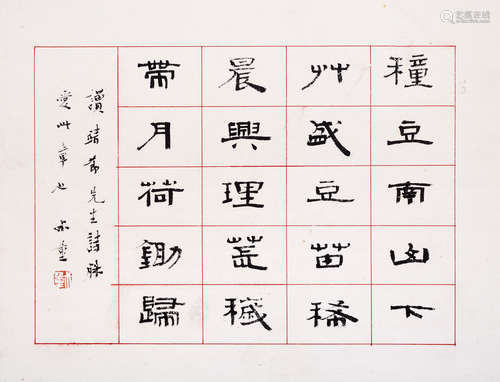 種豆南山下
艸盛豆苗稀
晨興理荒穢
帶月荷鋤歸
讀靖節先生詩殊
愛此章也